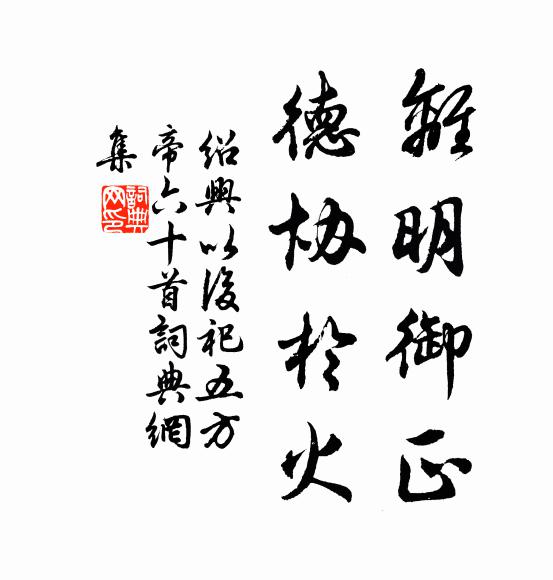 離明御正
德協於火
紹興以後祀五方
帝六十首詞典網
集
詞典网印